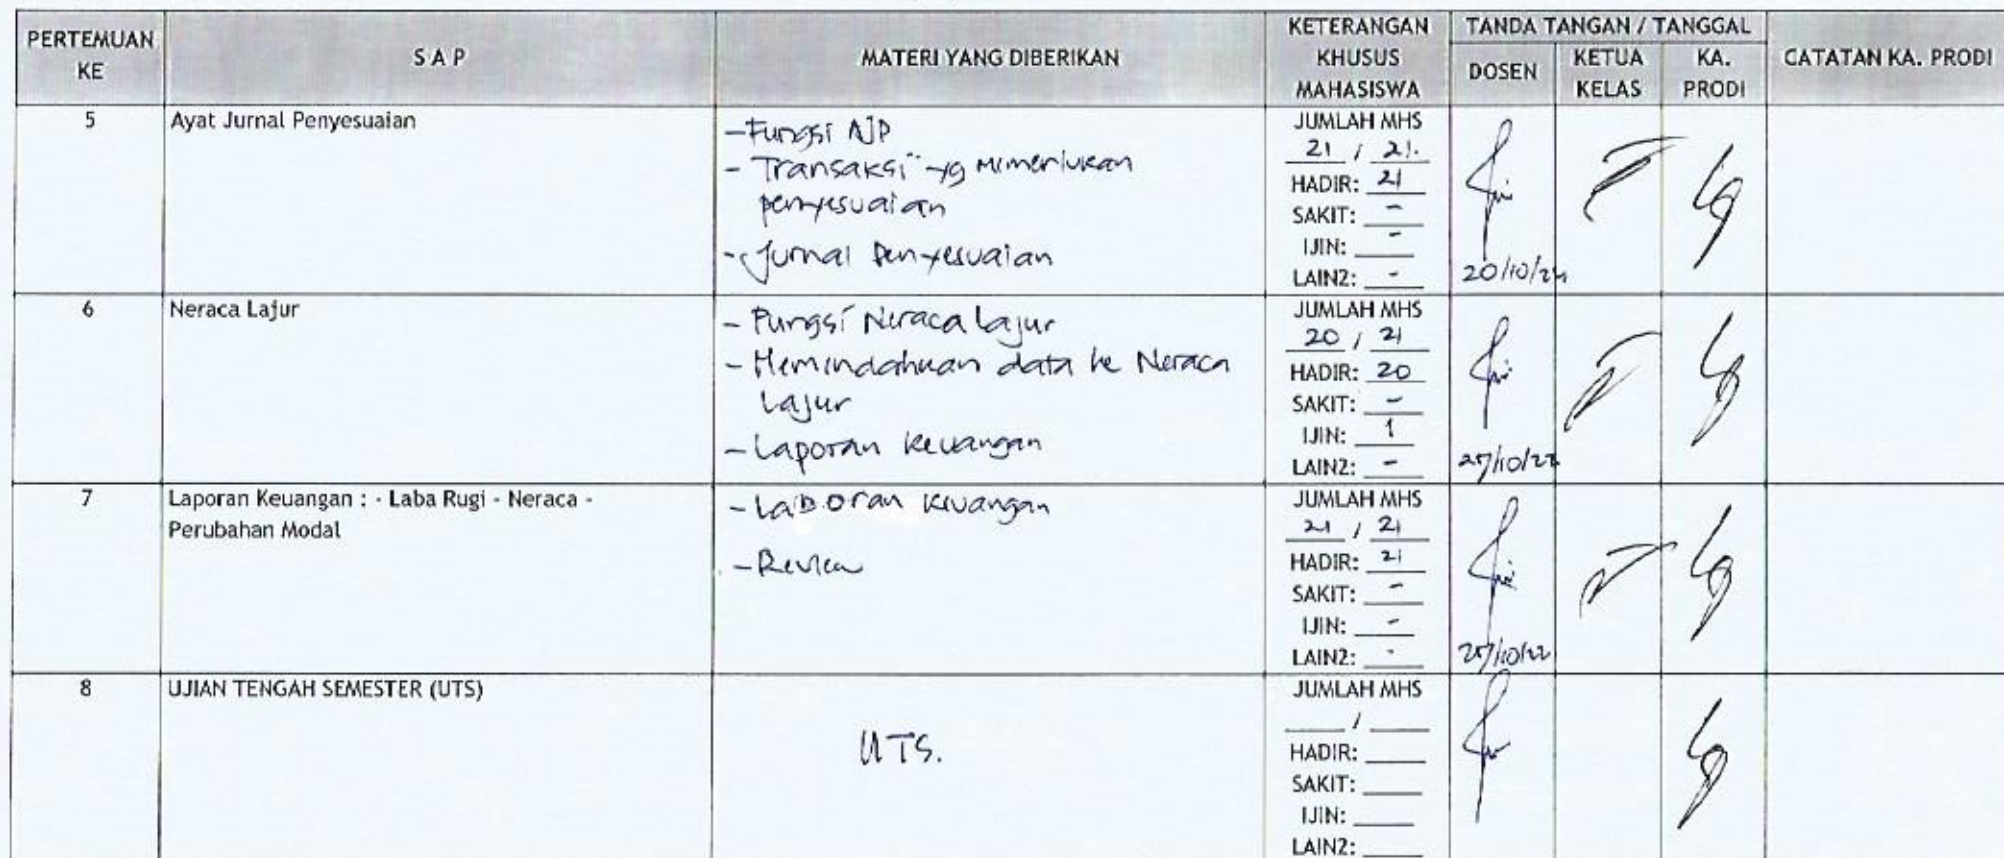 PERTEMUAN KE
S A P
MATERI YANG DIBERIKAN
KETERANGAN KHUSUS MAHASISWA
TANDA TANGAN / TANGGAL
DOSEN
KETUA KELAS
KA. PRODI
CATATAN KA. PRODI
5
Ayat Jurnal Penyesuaian
- Fungsi AJP
- Transaksi" yg memerlukan
penyesuaian
- Jurnal Penyesuaian
JUMLAH MHS
21 / 21.
HADIR: 21
SAKIT: -
IJIN: -
LAIN2: -
20/10/22
6
Neraca Lajur
- Fungsi Neraca Lajur
- Memindahkan data ke Neraca
Lajur
- Laporan Keuangan
JUMLAH MHS
20 / 21
HADIR: 20
SAKIT: -
IJIN: 1
LAIN2: -
27/10/22
7
Laporan Keuangan : - Laba Rugi - Neraca -
Perubahan Modal
- Laporan Keuangan
- Review
JUMLAH MHS
21 / 21
HADIR: 21
SAKIT: -
IJIN: -
LAIN2: -
27/10/22
8
UJIAN TENGAH SEMESTER (UTS)
UTS.
JUMLAH MHS
/
HADIR:
SAKIT:
IJIN:
LAIN2: